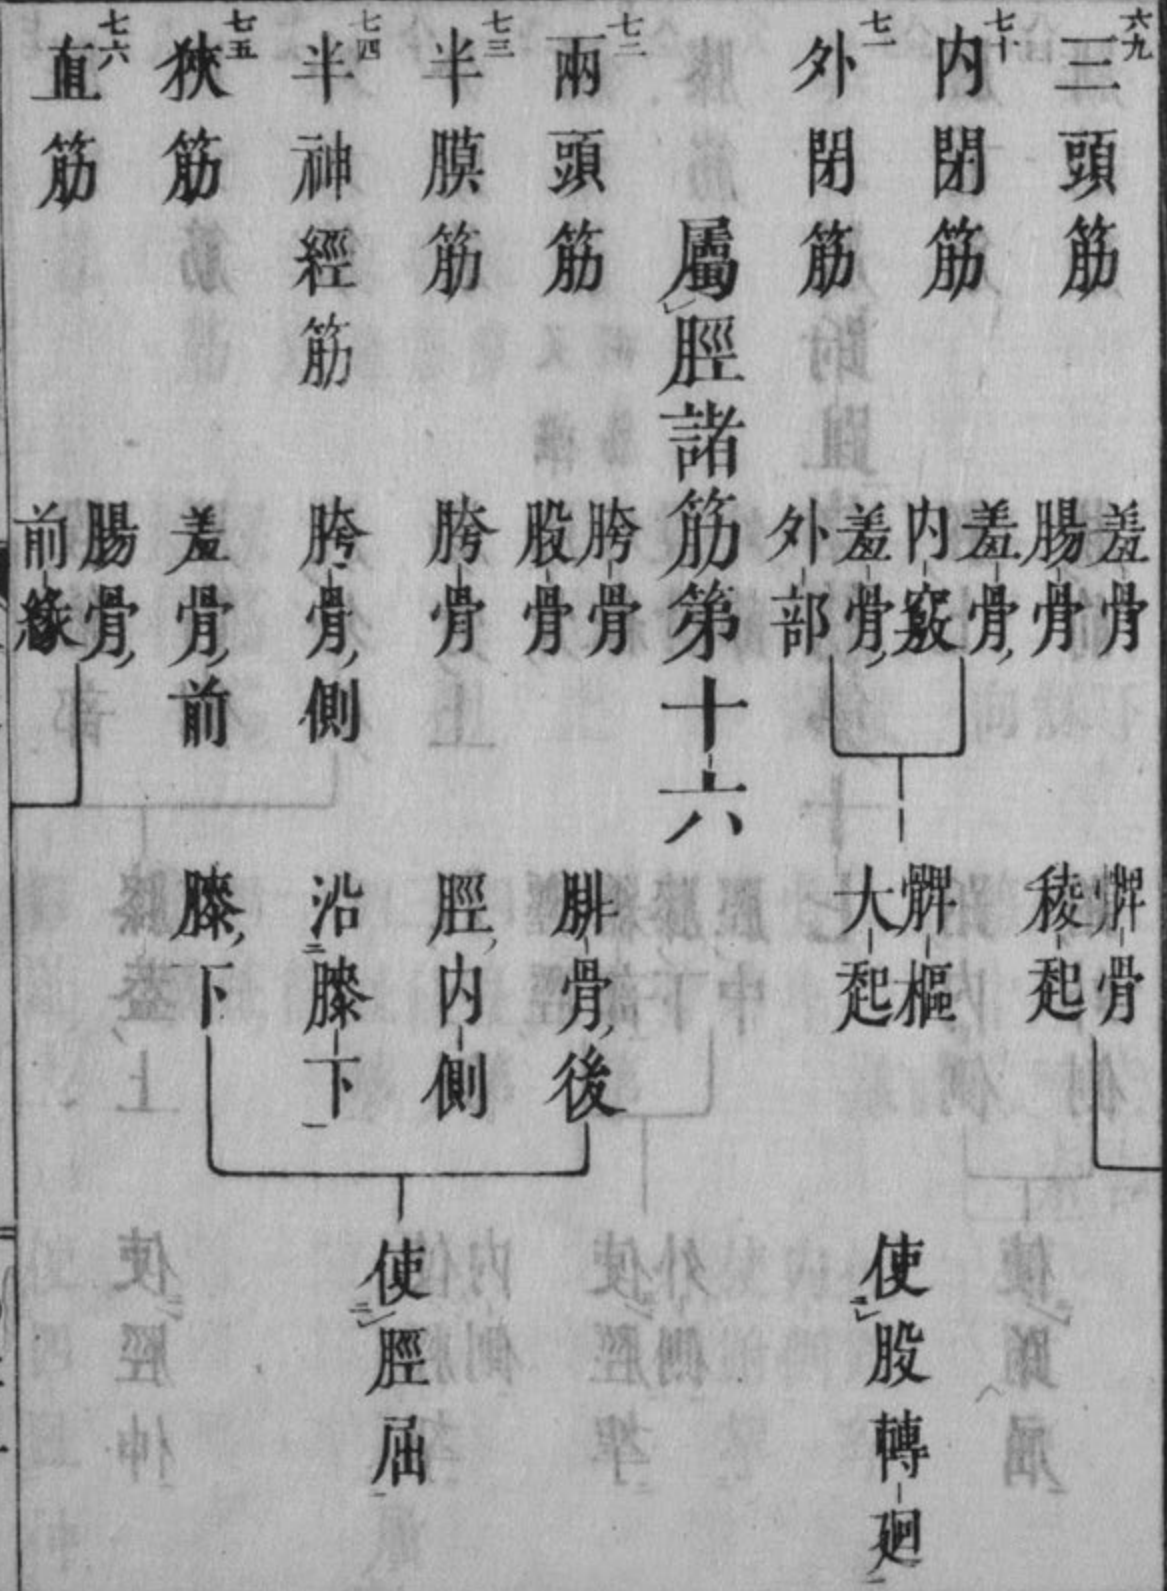 六九 三頭筋 羞骨 腸骨 髀骨 稜起
七十 内閉筋 羞骨 内竅
七一 外閉筋 羞骨 外部
髀樞 大起 使股轉廻
屬脛諸筋第十六
七二 兩頭筋 胯骨 股骨 腓骨後
七三 半膜筋 胯骨 脛内側
七四 半神經筋 胯骨側 沿膝下
七五 狹筋 羞骨前 膝下
使脛屈
七六 直筋 腸骨 前緣